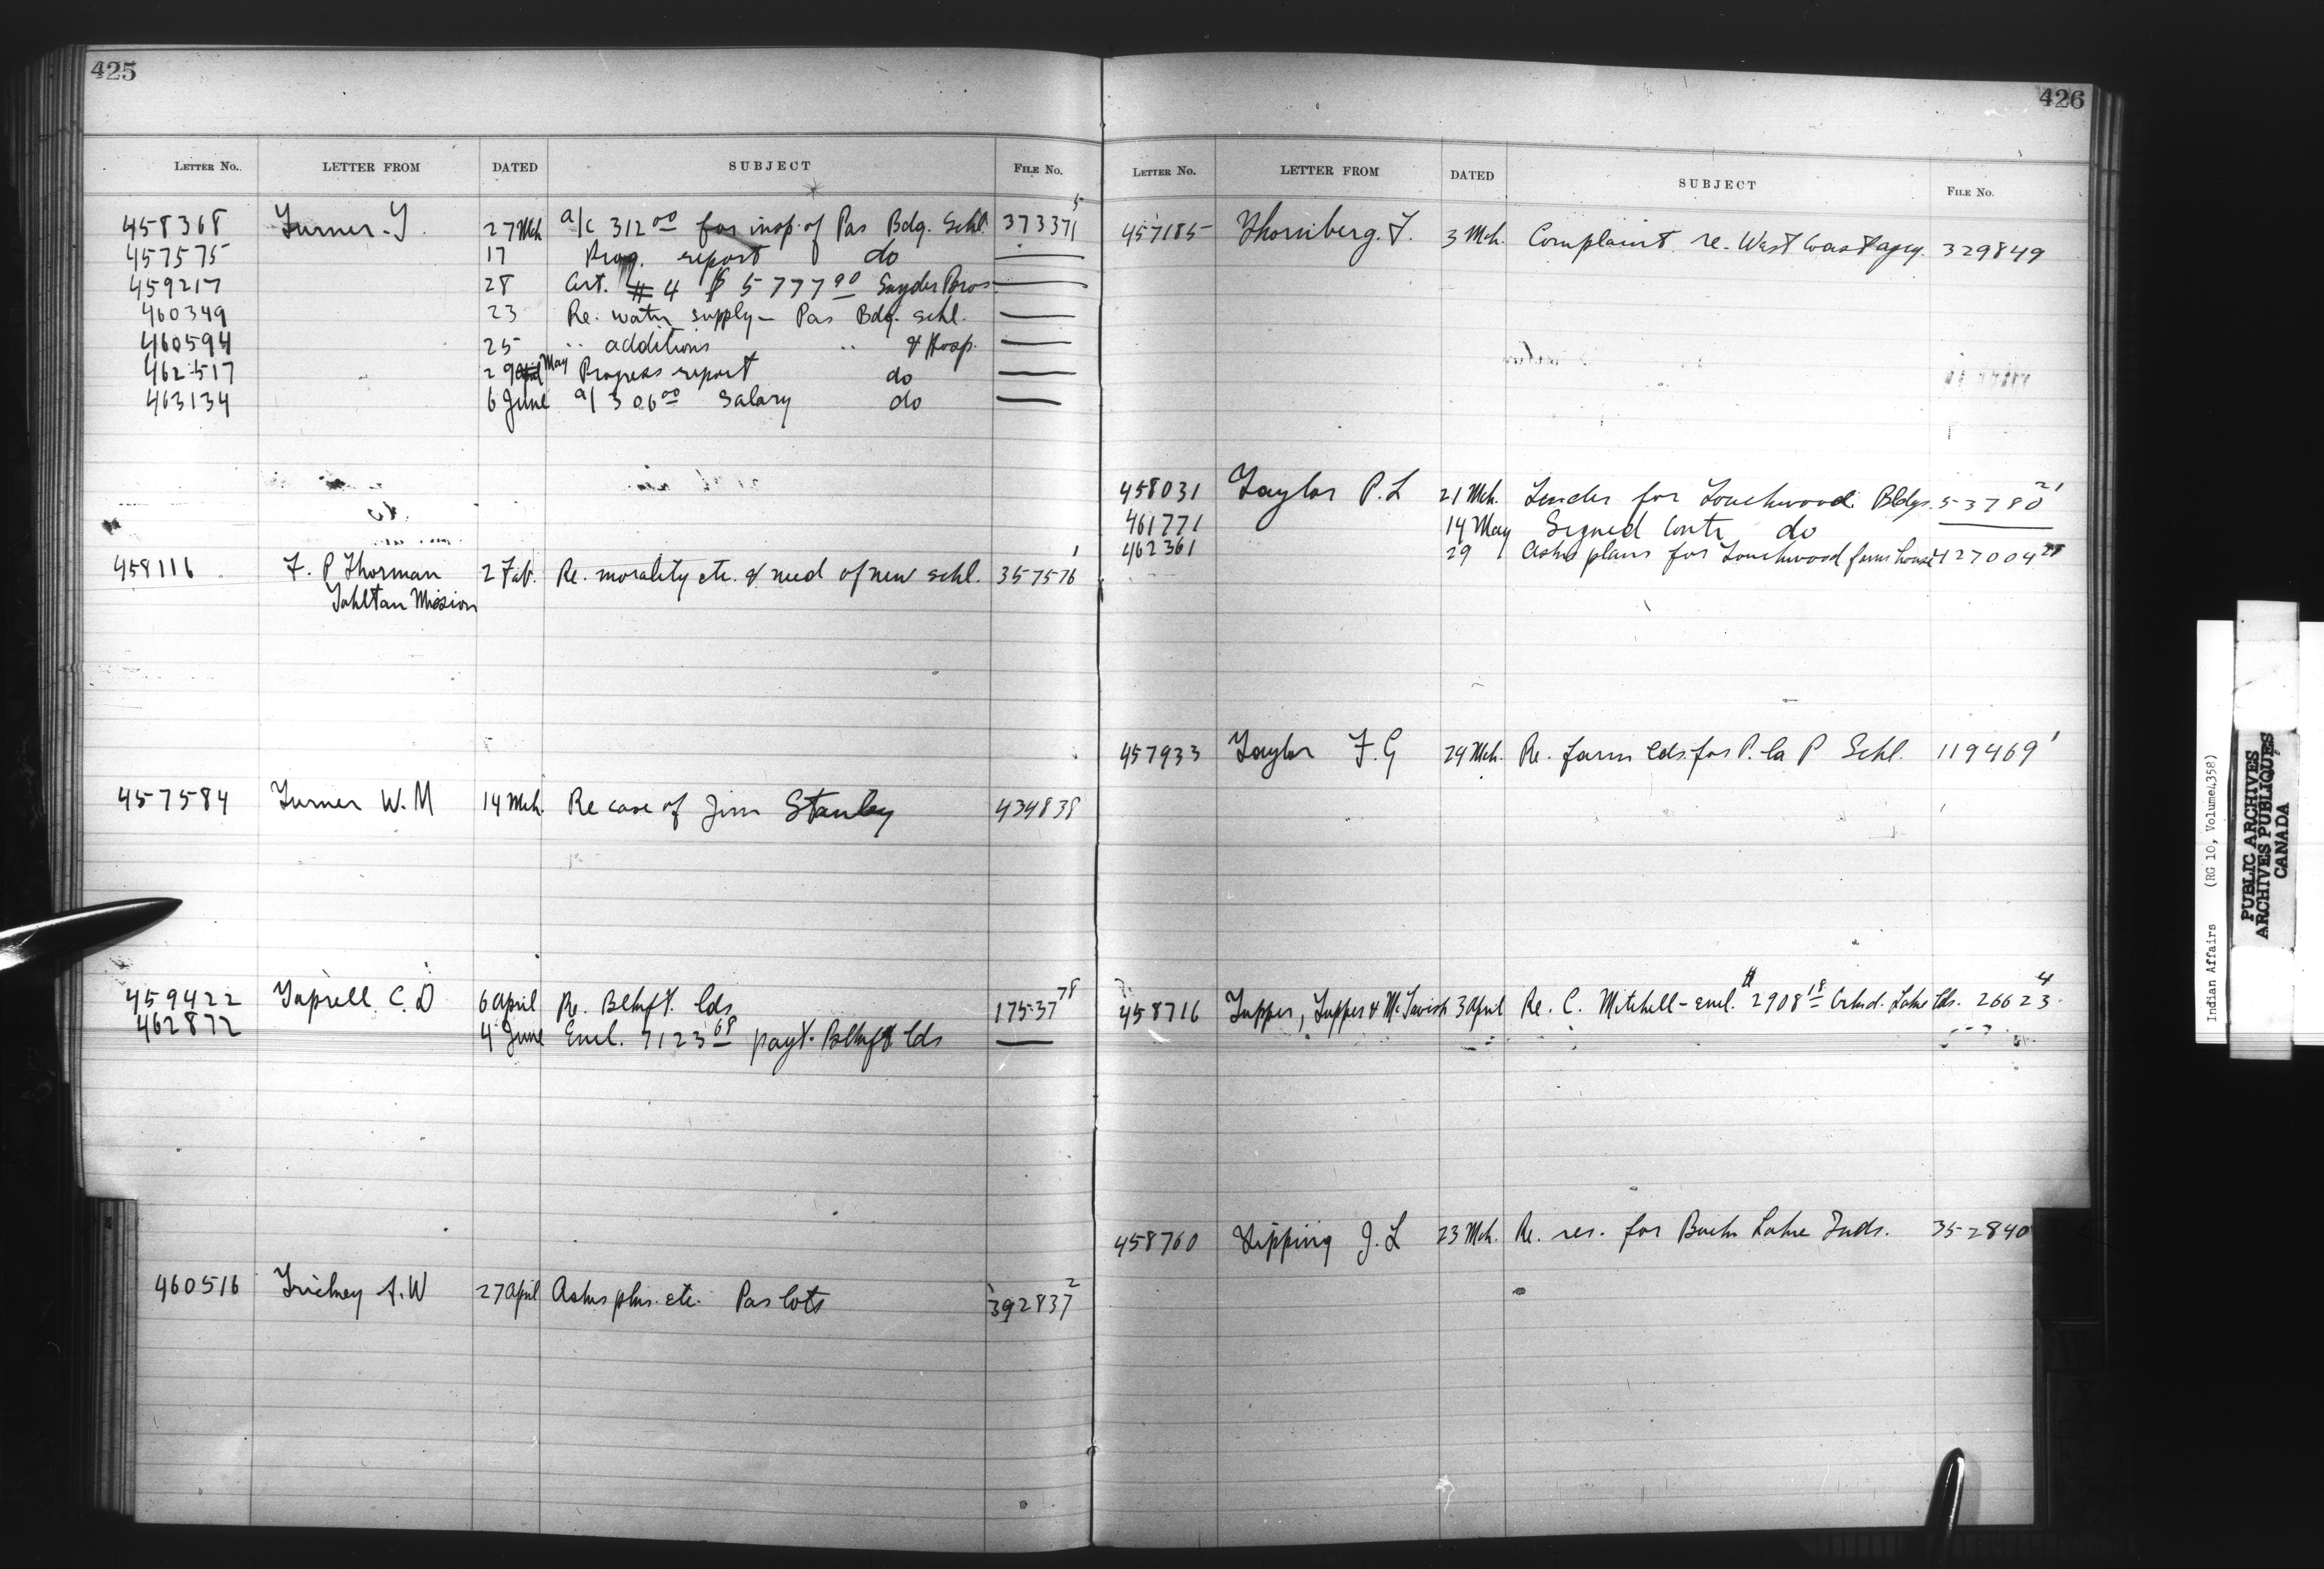 425
LETTER No. LETTER FROM DATED SUBJECT FILE No.
458368 Turner. T. 27 Mch a/c 312 00 for insp. of Pas Bdg. Schl. 373371 5
457575 17 Prog. report do —
459217 28 Cert. # 4 $ 5777 90 Snyder Bros —
460349 23 Re. water supply – Pas Bdg. schl. —
460594 25 " additions " & Hosp. —
462517 29 May Progress report do —
463134 6 June a/ 306 00 Salary do —
458116 F. P Thorman 2 Feb. Re. morality etc. & need of new schl. 357576 1
Tahltan Mission
457584 Turner W. M 14 Mch. Re case of Jim Stanley 434838
459422 Taprell C. D 6 April Re. Blkft. lds 17537 78
462872 4 June Encl. 7123 68 payt. Blkft lds —
460516 Trickey A. W 27 April Asks plns. etc. Pas lots 392837 2
426
LETTER No. LETTER FROM DATED SUBJECT FILE No.
457185 Thornberg. F. 3 Mch. Complaint re. West Coast agcy. 329849
458031 Taylor P. L 21 Mch. Tender for Touchwood Bldgs. 53780 21
461771 14 May Signed Contr do —
462361 29 Asks plans for Touchwood farm house 127004 28
457933 Taylor F. G 24 Mch. Re. farm lds. for P. la P Schl. 119469 1
458716 Tupper, Tupper & McTavish 3 April Re. C. Mitchell – encl. $ 2908 18 Crkd. Lake lds. 26623 4
458760 Tipping J. L 23 Mch. Re. res. for Buck Lake Inds. 352840
Indian Affairs (RG 10, Volume 4358)
PUBLIC ARCHIVES
ARCHIVES PUBLIQUES
CANADA